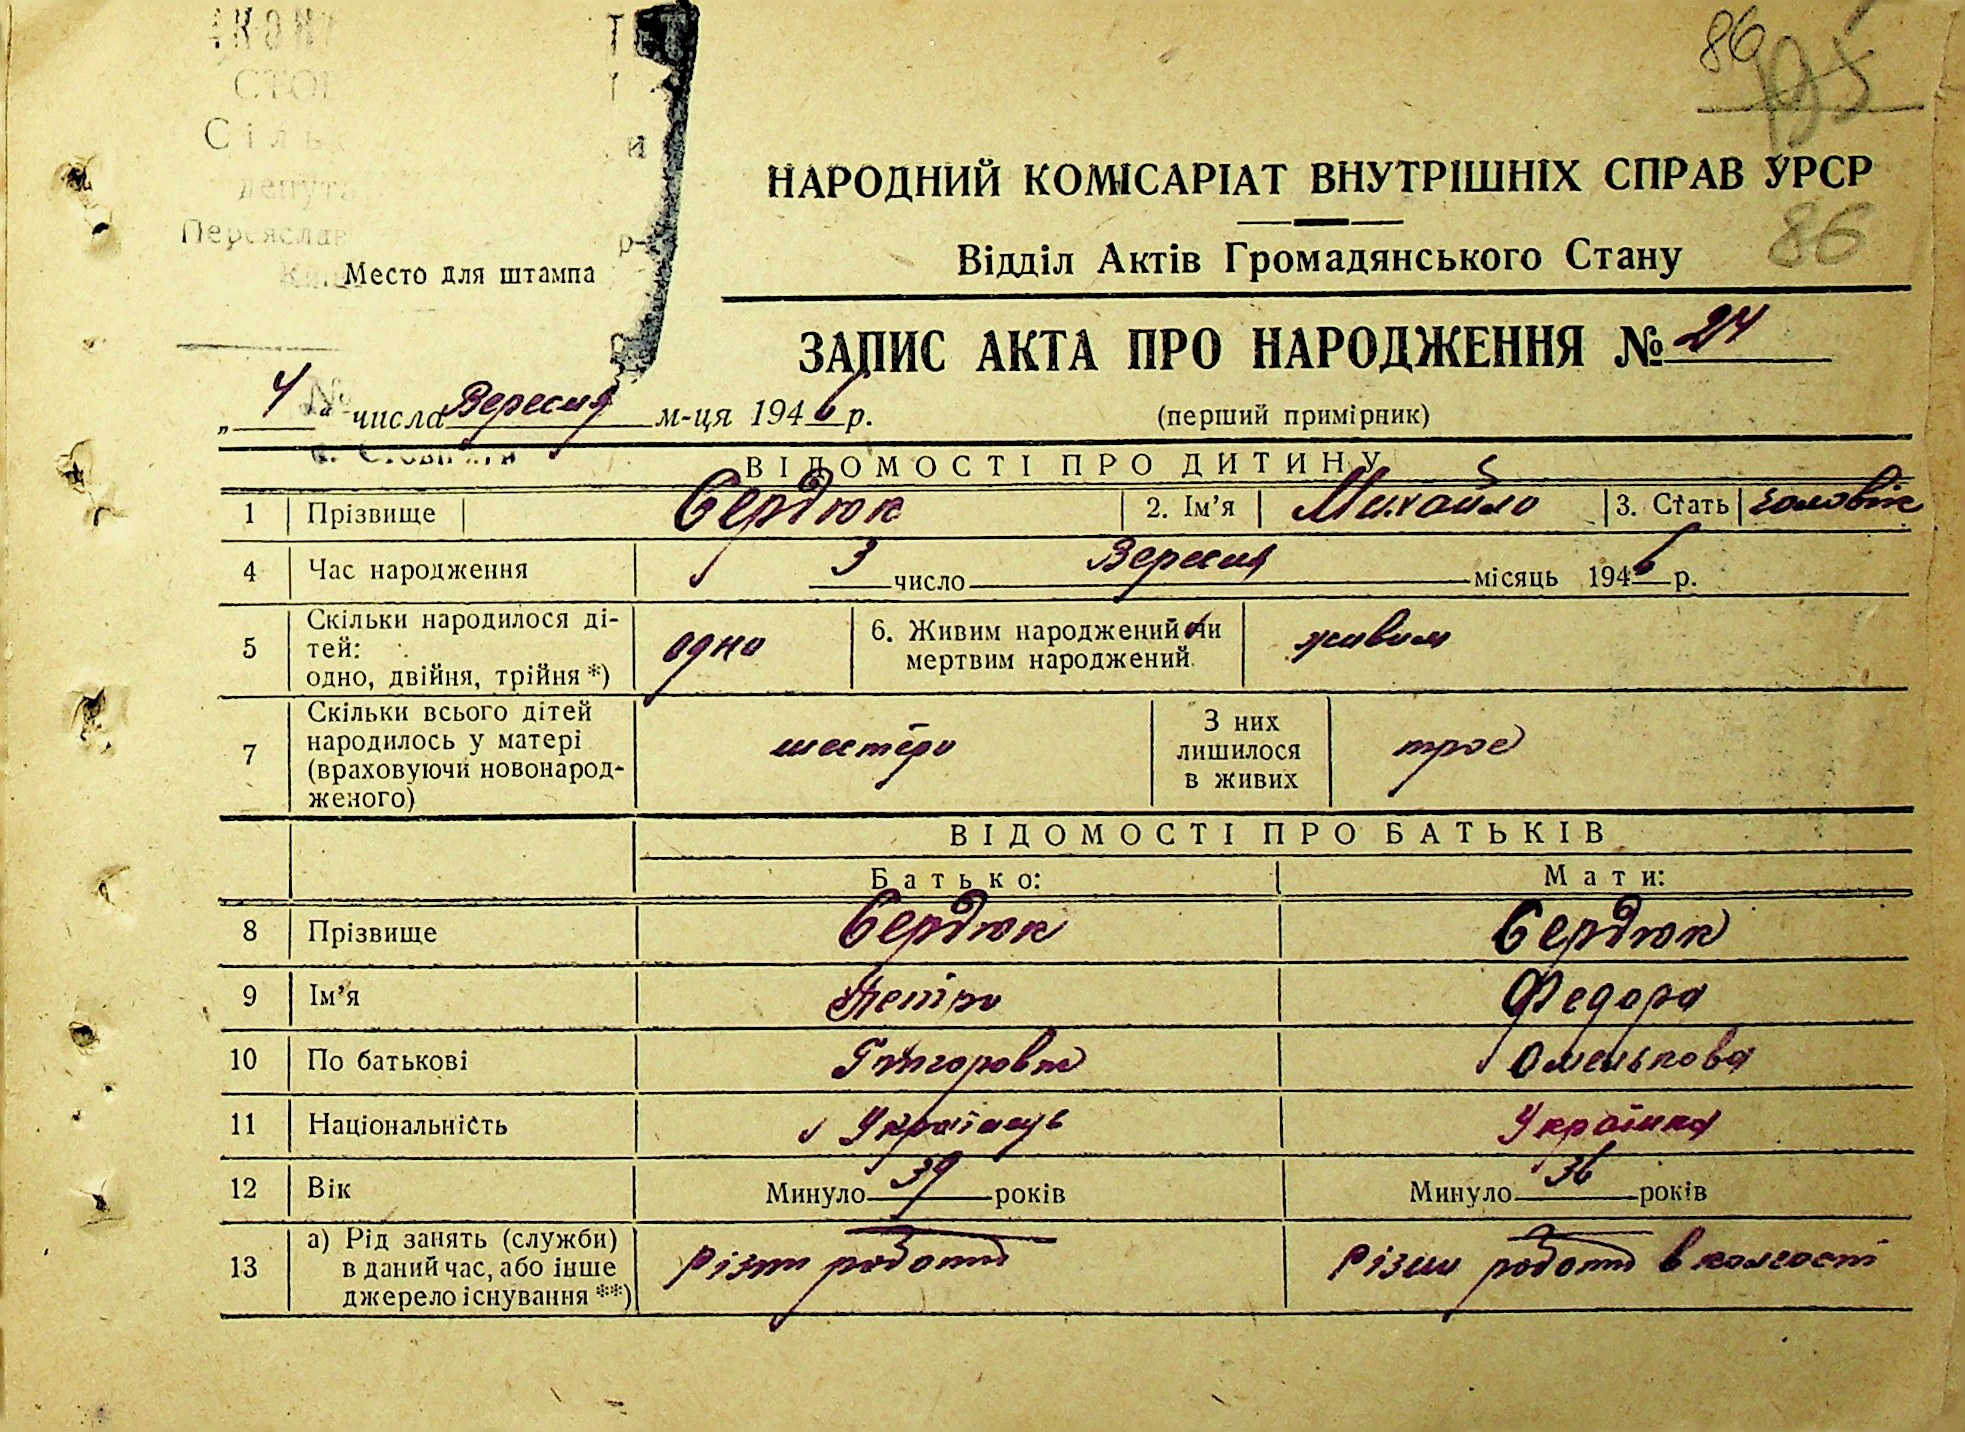 86
195
НАРОДНИЙ КОМІСАРІАТ ВНУТРІШНІХ СПРАВ УРСР
Відділ Актів Громадянського Стану
86
Место для штампа
ЗАПИС АКТА ПРО НАРОДЖЕННЯ № 24
„ 4 " числа Вересня м-ця 1946 р.
(перший примірник)
ВІДОМОСТІ ПРО ДИТИНУ
1 Прізвище Сердюк 2. Ім'я Михайло 3. Стать чоловіч
4 Час народження 3 число Вересня місяць 1946 р.
5 Скільки народилося ді-
тей:
одно, двійня, трійня *) одно 6. Живим народжений чи
мертвим народжений живим
7 Скільки всього дітей
народилось у матері
(враховуючи новонарод-
женого) шестеро З них
лишилося
в живих троє
ВІДОМОСТІ ПРО БАТЬКІВ
Батько: Мати:
8 Прізвище Сердюк Сердюк
9 Ім'я Петро Федора
10 По батькові Григоровіч Омелькова
11 Національність Українець Українка
12 Вік Минуло 39 років Минуло 36 років
13 а) Рід занять (служби)
в даний час, або інше
джерело існування **) Різни роботи Різни роботи в колгоспі